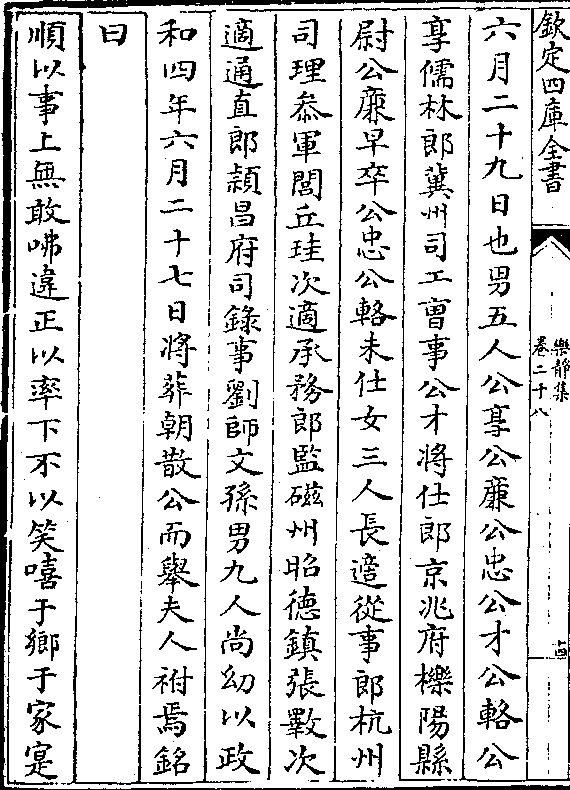 欽定四庫全書
樂靜集
卷二十八
十四
六月二十九日也男五人公享公亷公忠公才公輅公
享儒林郎冀州司工曹事公才將仕郎京兆府櫟陽縣
尉公亷早卒公忠公輅未仕女三人長適從事郎杭州
司理叅軍閭丘珪次適承務郎監磁州昭德鎮張斆次
適通直郎潁昌府司錄事劉師文孫男九人尚幼以政
和四年六月二十七日將葬朝散公而舉夫人祔焉銘
曰
順以事上無敢咈違正以率下不以笑嘻于鄉于家寔